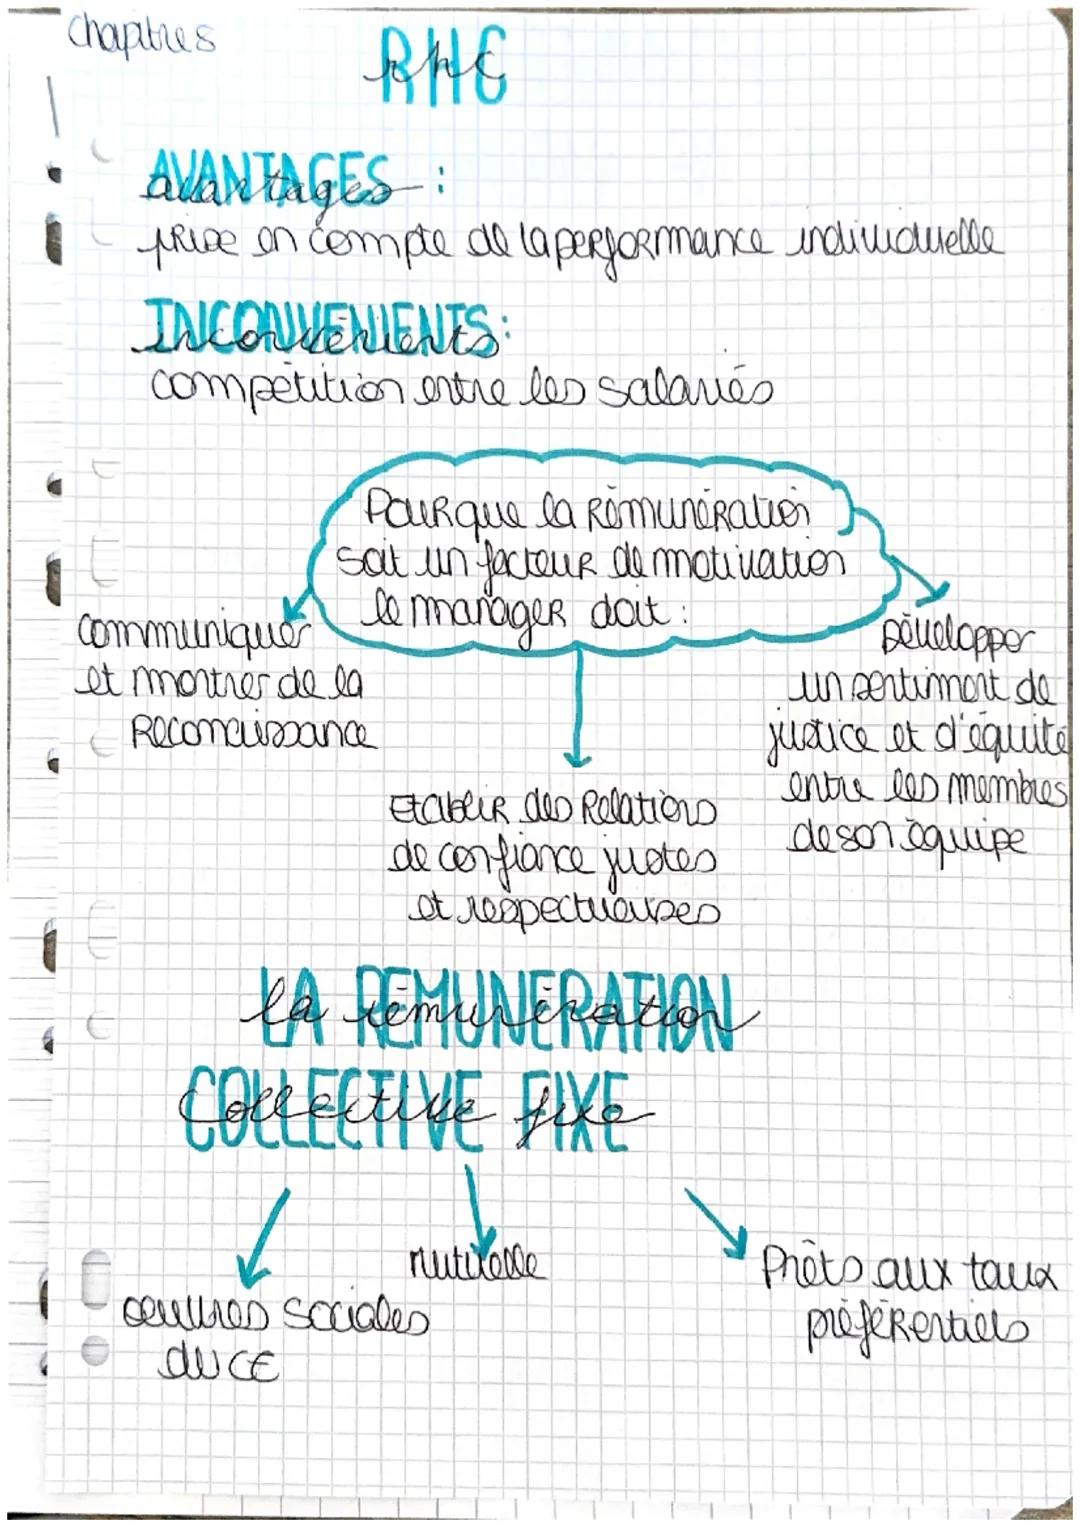 Chapitres
RHC
AVANTAGES :
prise en compte de la performance individuelle
INCONVÉNIENTS :
compétition entre les salariés
Pour que la Rémunération
soit un facteur de motivation
le manager doit :
communiquer
et montrer de la
Reconnaissance
Etablir des Relations
de confiance justes
et respectueuses
Développer
un sentiment de
justice et d'équité
entre les membres
de son équipe
LA RÉMUNÉRATION
COLLECTIVE FIXE
œuvres sociales
du CE
mutuelle
Prêts aux taux
préférentiels